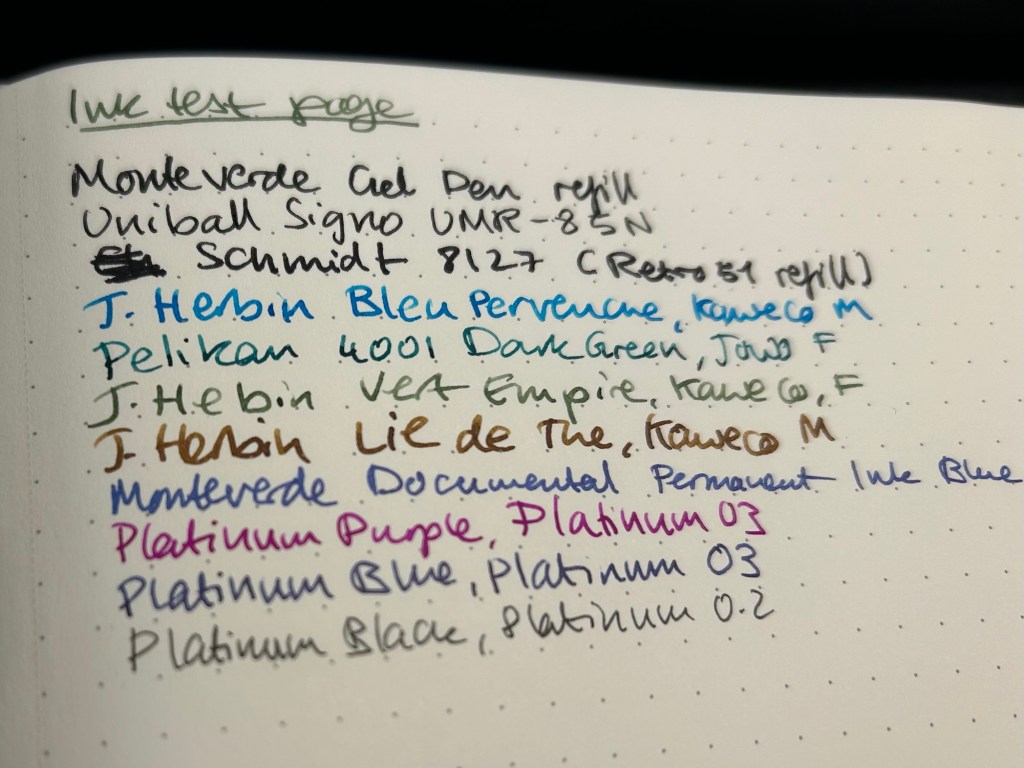 Ink test page
Monteverde Gel Pen refill
Uniball Signo UMR-85N
Schmidt 8127 (Retro 51 refill)
J. Herbin Bleu Pervenche, Kaweco M
Pelikan 4001 Dark Green, Jowo F
J. Hebin Vert Empire, Kaweco, F
J. Herbin Lie de The, Kaweco M
Monteverde Documental Permanent Ink Blue
Platinum Purple, Platinum 03
Platinum Blue, Platinum 03
Platinum Black, Platinum 0.2